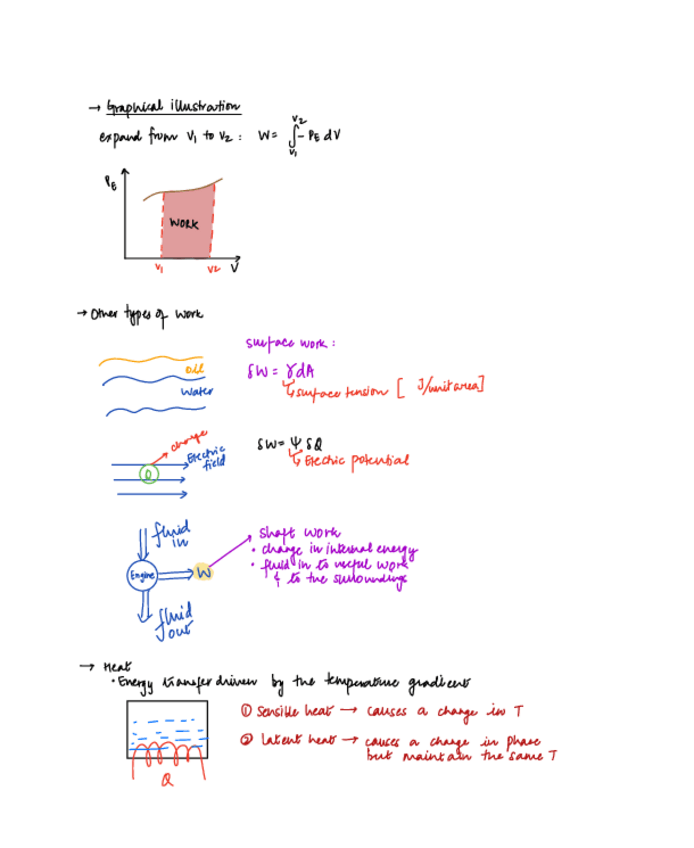 → Graphical illustration
expand from V1 to V2 : W = ∫ V1 V2 - PE dV
PE
WORK
V1 V2 V
→ Other types of work
surface work :
oil
δW = γdA
water
↳ surface tension [ J/unit area]
charge
Electric field
Q
δW = Ψ δQ
↳ Electric potential
fluid in
shaft work
• change in internal energy
Engine
W
• fluid in to useful work
& to the surroundings
fluid out
→ Heat
• Energy transfer driven by the temperature gradient
① Sensible heat → causes a change in T
② Latent heat → causes a change in phase
but maintain the same T
Q